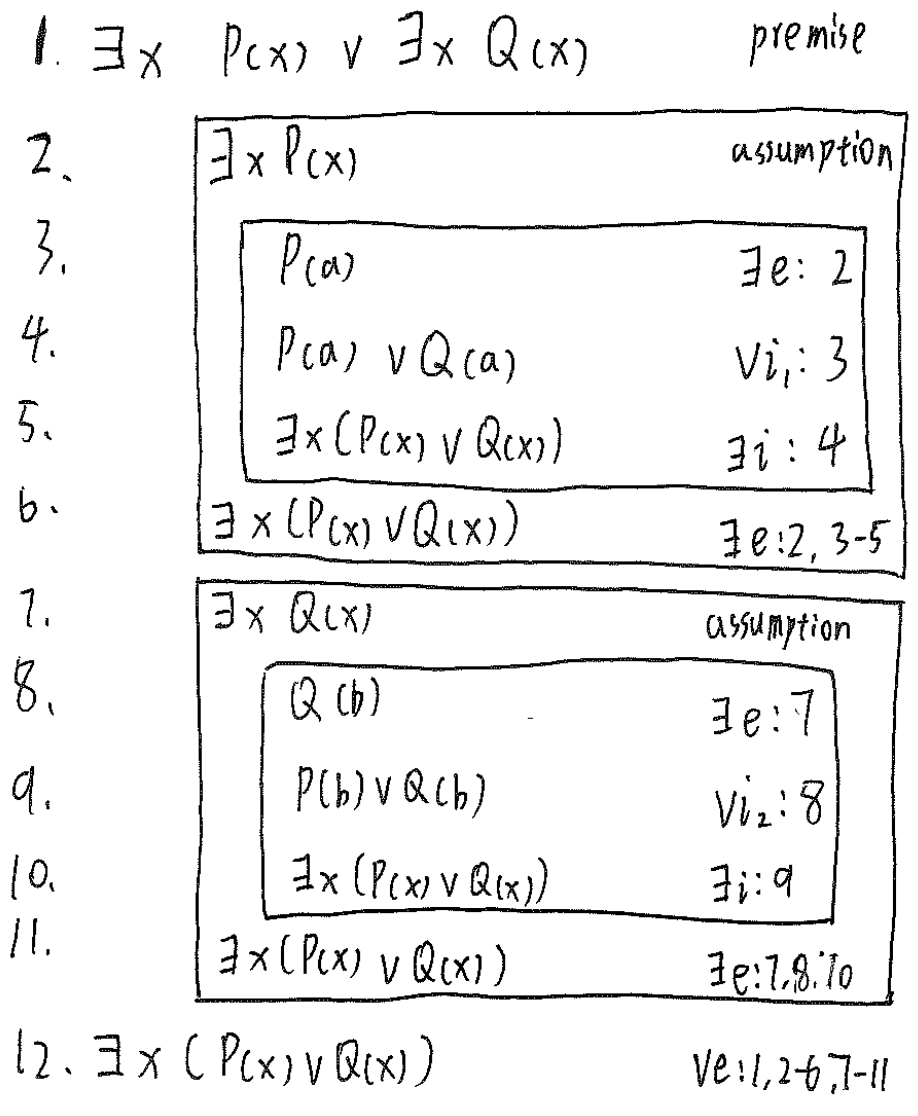 1. ∃x P(x) ∨ ∃x Q(x) premise
2. ∃x P(x) assumption
3. P(a) ∃e: 2
4. P(a) ∨ Q(a) ∨i₁: 3
5. ∃x(P(x) ∨ Q(x)) ∃i: 4
6. ∃x(P(x) ∨ Q(x)) ∃e:2, 3-5
7. ∃x Q(x) assumption
8. Q(b) ∃e:7
9. P(b) ∨ Q(b) ∨i₂:8
10. ∃x(P(x) ∨ Q(x)) ∃i:9
11. ∃x(P(x) ∨ Q(x)) ∃e:7,8-10
12. ∃x(P(x) ∨ Q(x)) ∨e:1,2-6,7-11